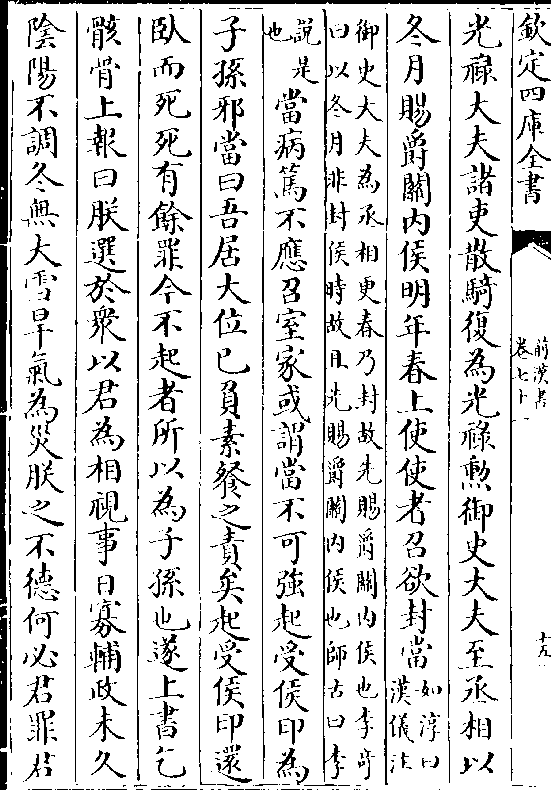 欽定四庫全書
前漢書
卷七十一
十五
光祿大夫諸吏散騎復為光祿勲御史大夫至丞相以
冬月賜爵關内侯明年春上使使者召欲封當如淳曰
漢儀注
御史大夫為丞相更春乃封故先賜爵關内侯也李竒
曰以冬月非封侯時故且先賜爵關内侯也師古曰李
説是
也
當病篤不應召室家或謂當不可強起受侯印為
子孫邪當曰吾居大位已負素餐之責矣起受侯印還
臥而死死有餘罪今不起者所以為子孫也遂上書乞
骸骨上報曰朕選於衆以君為相視事日寡輔政未久
隂陽不調冬無大雪旱氣為災朕之不德何必君罪君